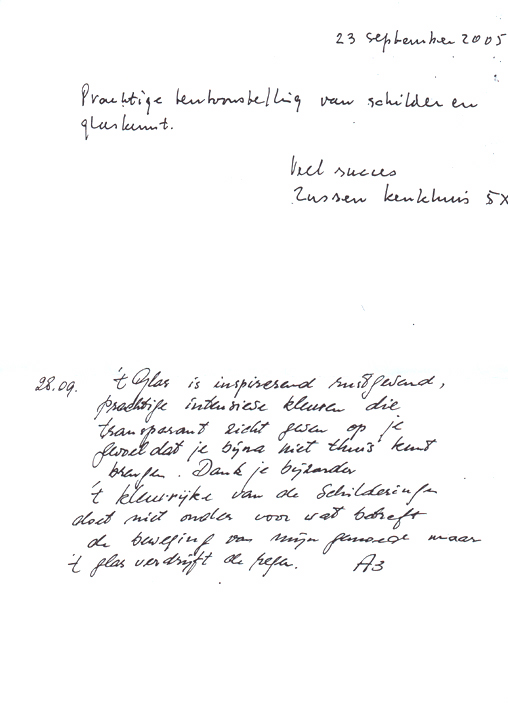 23 september 2005
Prachtige tentoonstelling van schilder en
glaskunst.
Veel succes
Zussen kenkhuis 5x
28.09. 't Glas is inspirerend rustgevend,
prachtige intensiese kleuren die
transparant zicht geven op je
gevoel dat je bijna niet thuis kunt
brengen. Dank je bijzonder
't kleurrijke van de Schilderingen
doet niet onder voor wat betreft
de beweging van mijn gemoed maar
't glas verdrijft de regen. A3